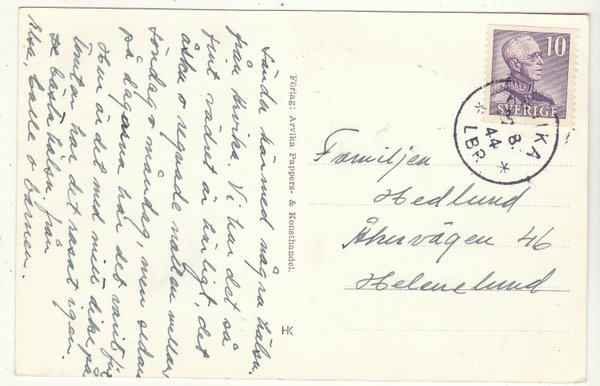 Sända härmed några hälsn.
från Arvika. Vi har det så
fint vädret är härligt, det
åska o regnade natten mellan
söndag o måndag, men sedan
på dagarna har det varit fint
Hur är det med min dike på
Tomten har det rasat igen.
De bästa hälsn. från
Elsa, Lasse o barnen.
Förlag: Arvika Pappers- & Konsthandel.
10
SVERIGE
ARVIKA
8.
44
LBR
Familjen
Hedlund
Åkervägen 46
Helenelund